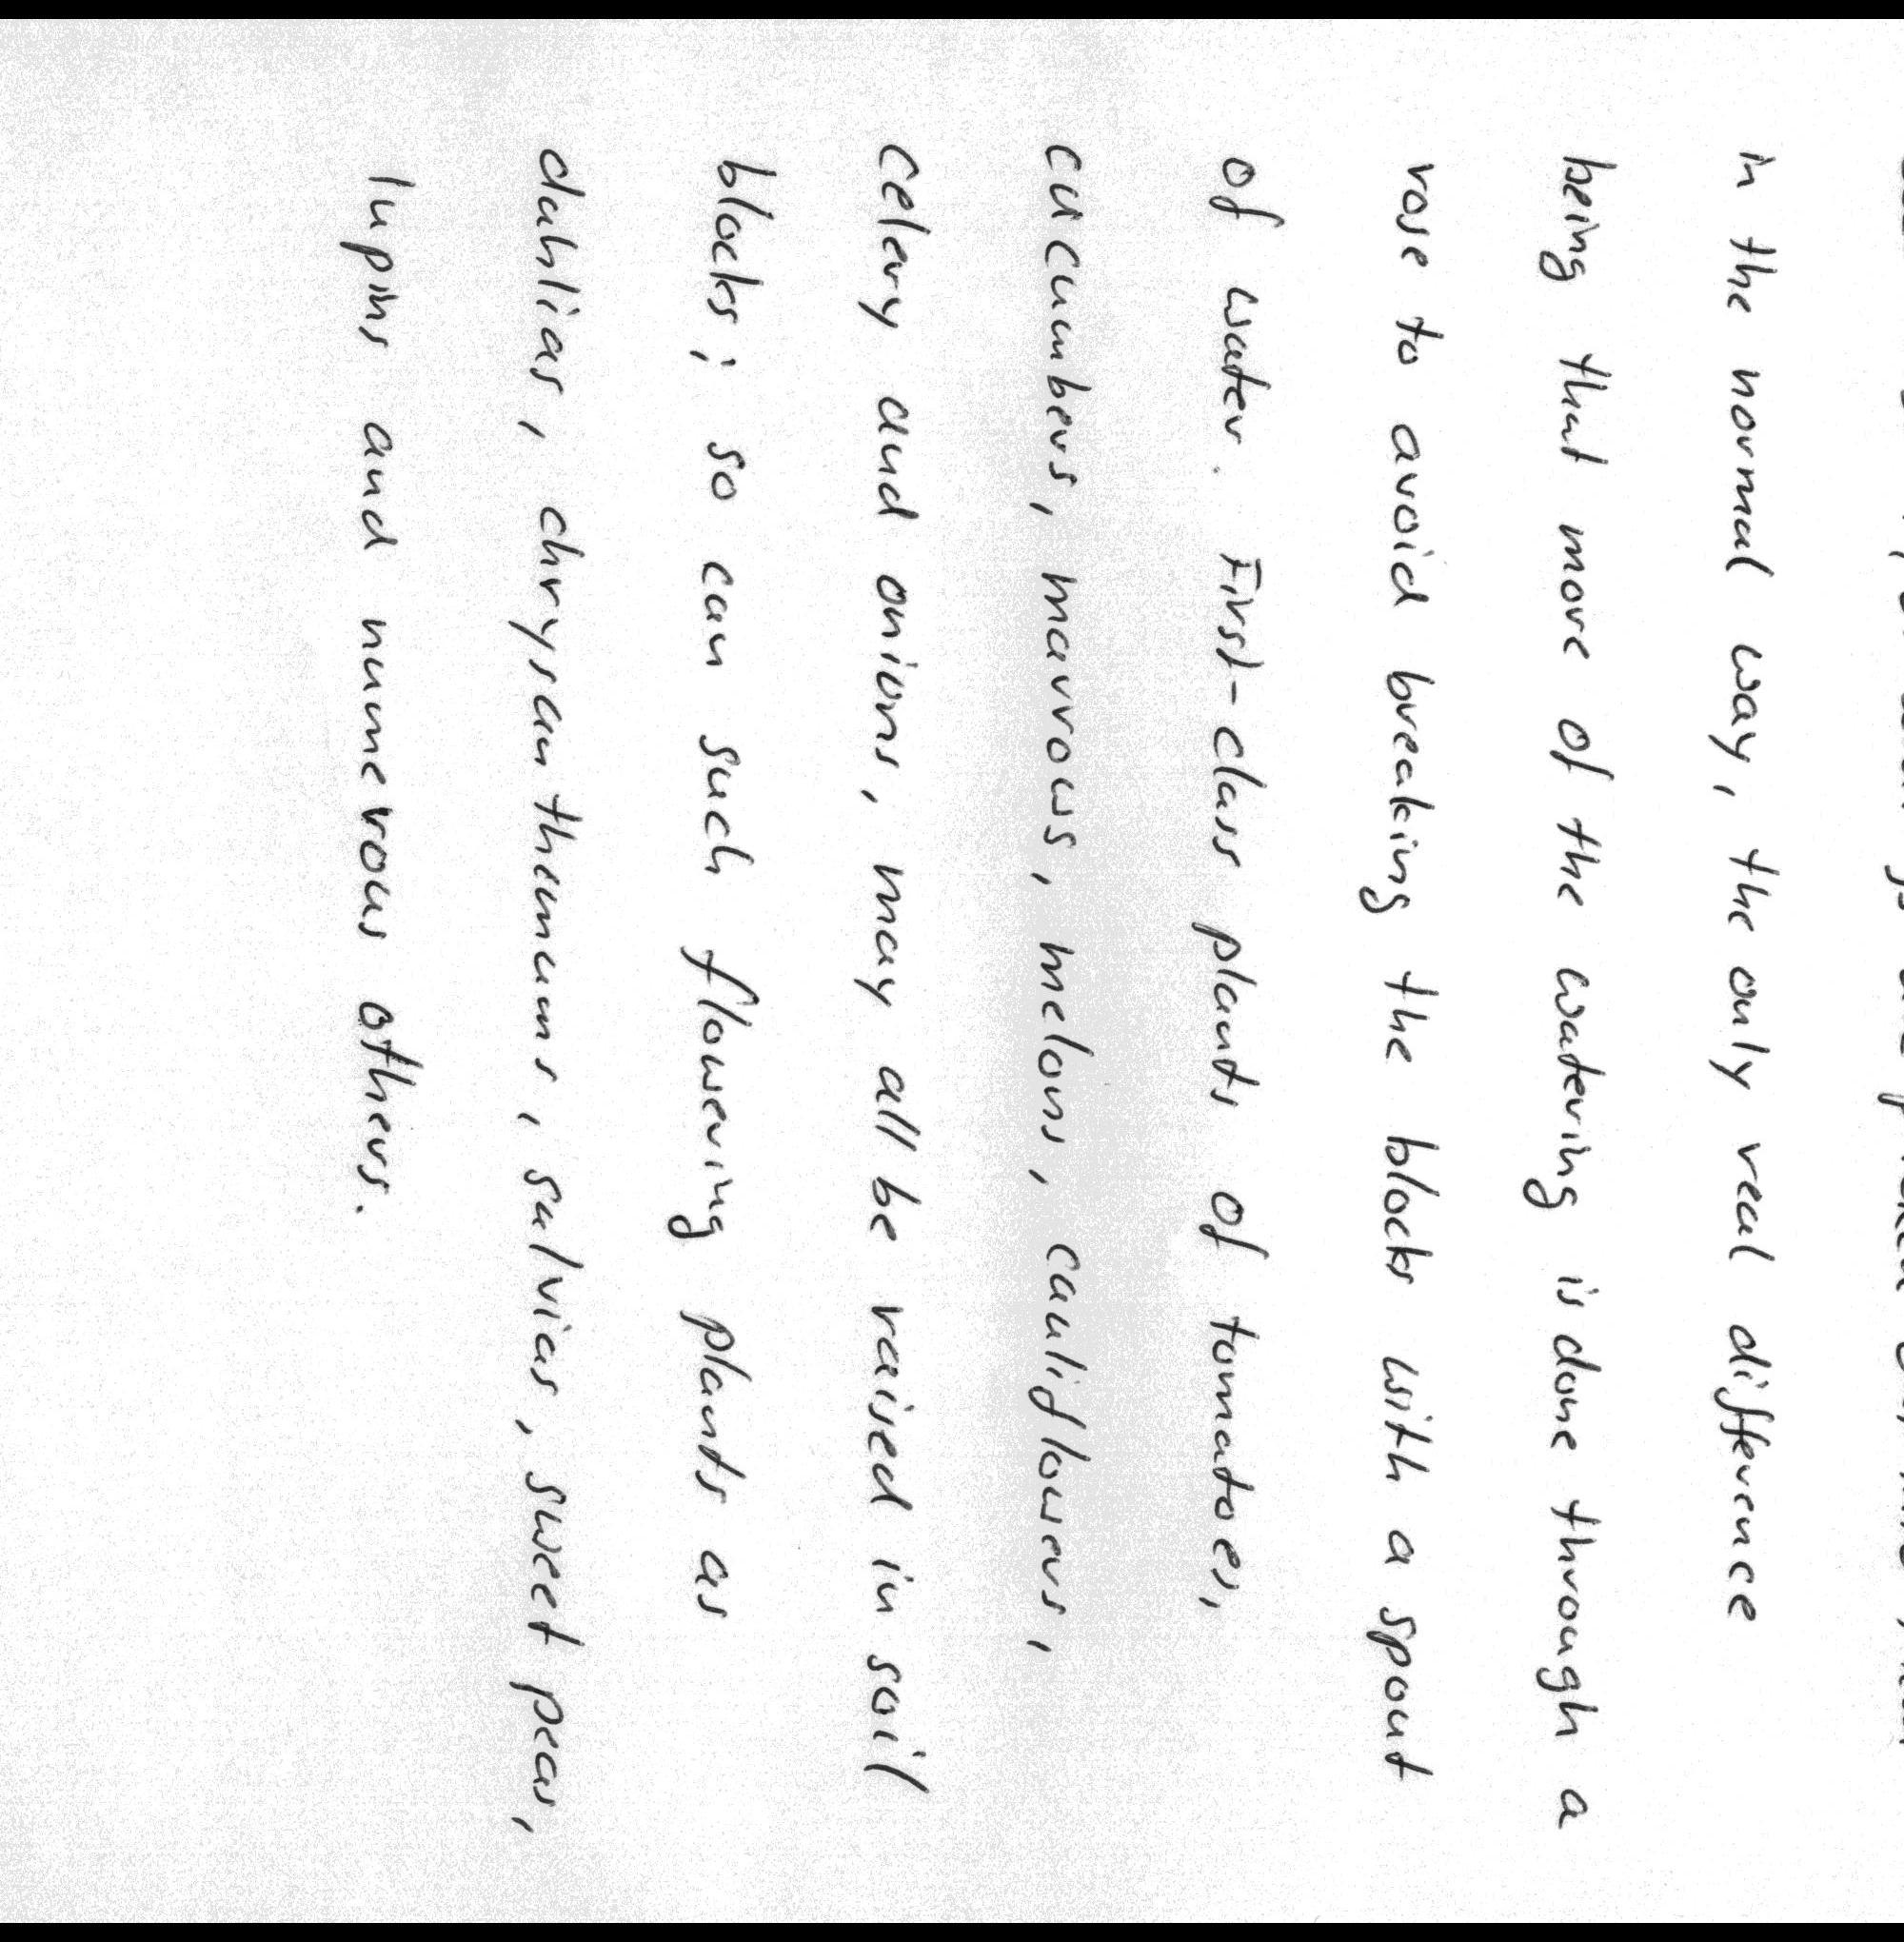 in the normal way, the only real difference
being that more of the watering is done through a
rose to avoid breaking the blocks with a spout
of water. First-class plants of tomatoes,
cucumbers, marrows, melons, cauliflowers,
celery and onions, may all be raised in soil
blocks; so can such flowering plants as
dahlias, chrysanthemums, salvias, sweet peas,
lupins and numerous others.